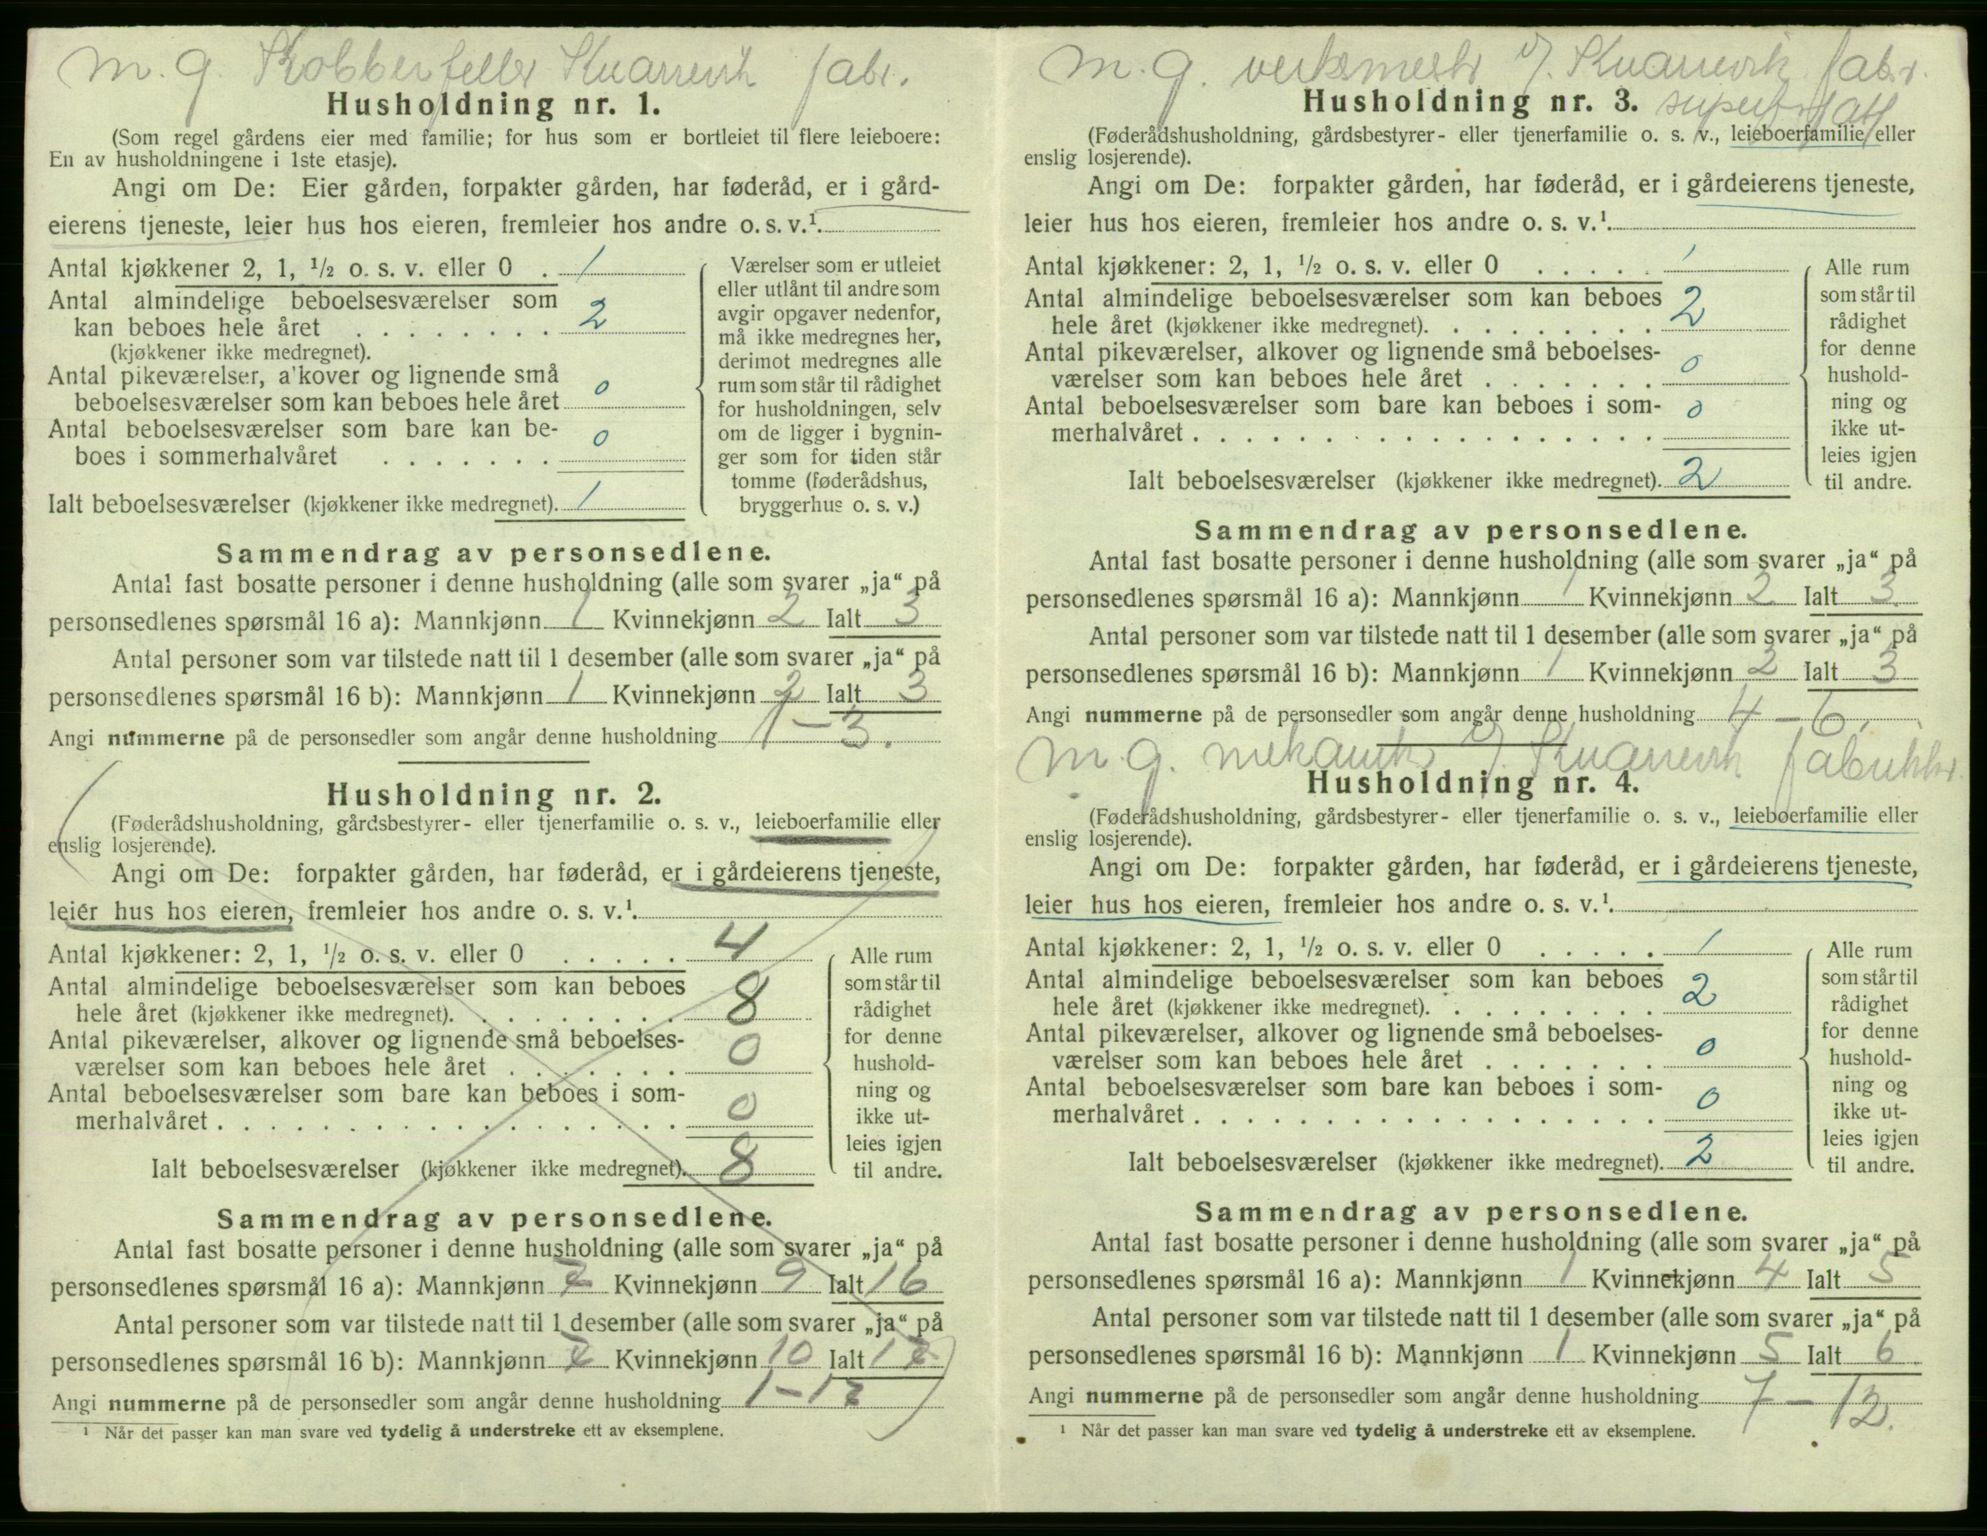 m. g. Kobberfeller Knarrevik fabr.
Husholdning nr. 1.
(Som regel gårdens eier med familie; for hus som er bortleiet til flere leieboere:
En av husholdningene i 1ste etasje).
Angi om De: Eier gården, forpakter gården, har føderåd, er i gård-
eierens tjeneste, leier hus hos eieren, fremleier hos andre o. s. v.¹
Antal kjøkkener 2, 1, ½ o. s. v. eller 0 . 1
Antal almindelige beboelsesværelser som
kan beboes hele året . . . . . . . . 2
(kjøkkener ikke medregnet).
Antal pikeværelser, a'kover og lignende små
beboelsesværelser som kan beboes hele året 0
Antal beboelsesværelser som bare kan be-
boes i sommerhalvåret . . . . . . . 0
Ialt beboelsesværelser (kjøkkener ikke medregnet). 1
Værelser som er utleiet
eller utlånt til andre som
avgir opgaver nedenfor,
må ikke medregnes her,
derimot medregnes alle
rum som står til rådighet
for husholdningen, selv
om de ligger i bygnin-
ger som for tiden står
tomme (føderådshus,
bryggerhus o. s. v.)
Sammendrag av personsedlene.
Antal fast bosatte personer i denne husholdning (alle som svarer „ja“ på
personsedlenes spørsmål 16 a): Mannkjønn 1 Kvinnekjønn 2 Ialt 3
Antal personer som var tilstede natt til 1 desember (alle som svarer „ja“ på
personsedlenes spørsmål 16 b): Mannkjønn 1 Kvinnekjønn 2 Ialt 3
Angi nummerne på de personsedler som angår denne husholdning 1-3.
Husholdning nr. 2.
(Føderådshusholdning, gårdsbestyrer- eller tjenerfamilie o. s. v., leieboerfamilie eller
enslig losjerende).
Angi om De: forpakter gården, har føderåd, er i gårdeierens tjeneste,
leier hus hos eieren, fremleier hos andre o. s. v.¹
Antal kjøkkener: 2, 1, ½ o. s. v. eller 0 . . . . . 4
Antal almindelige beboelsesværelser som kan beboes
hele året (kjøkkener ikke medregnet). . . . . . . . . 8
Antal pikeværelser, alkover og lignende små beboelses-
værelser som kan beboes hele året . . . . . . . 0
Antal beboelsesværelser som bare kan beboes i som-
merhalvåret . . . . . . . . . . . . . . . . . . 0
Ialt beboelsesværelser (kjøkkener ikke medregnet). 8
Alle rum
som står til
rådighet
for denne
hushold-
ning og
ikke ut-
leies igjen
til andre.
Sammendrag av personsedlene.
Antal fast bosatte personer i denne husholdning (alle som svarer „ja“ på
personsedlenes spørsmål 16 a): Mannkjønn 7 Kvinnekjønn 9 Ialt 16
Antal personer som var tilstede natt til 1 desember (alle som svarer „ja“ på
personsedlenes spørsmål 16 b): Mannkjønn 7 Kvinnekjønn 10 Ialt 17
Angi nummerne på de personsedler som angår denne husholdning 1-17
¹ Når det passer kan man svare ved tydelig å understreke ett av eksemplene.
m. g. verksmestr v/. Knarrevik fabr.
Husholdning nr. 3.
(Føderådshusholdning, gårdsbestyrer- eller tjenerfamilie o. s. v., leieboerfamilie eller
enslig losjerende).
Angi om De: forpakter gården, har føderåd, er i gårdeierens tjeneste,
leier hus hos eieren, fremleier hos andre o. s. v.¹
Antal kjøkkener: 2, 1, ½ o. s. v. eller 0 . . . . . 1
Antal almindelige beboelsesværelser som kan beboes
hele året (kjøkkener ikke medregnet). . . . . . . . . 2
Antal pikeværelser, alkover og lignende små beboelses-
værelser som kan beboes hele året . . . . . . . 0
Antal beboelsesværelser som bare kan beboes i som-
merhalvåret . . . . . . . . . . . . . . . . . . 0
Ialt beboelsesværelser (kjøkkener ikke medregnet). 2
Alle rum
som står til
rådighet
for denne
hushold-
ning og
ikke ut-
leies igjen
til andre.
Sammendrag av personsedlene.
Antal fast bosatte personer i denne husholdning (alle som svarer „ja“ på
personsedlenes spørsmål 16 a): Mannkjønn 1 Kvinnekjønn 2 Ialt 3
Antal personer som var tilstede natt til 1 desember (alle som svarer „ja“ på
personsedlenes spørsmål 16 b): Mannkjønn 1 Kvinnekjønn 2 Ialt 3
Angi nummerne på de personsedler som angår denne husholdning 4-6.
m. g. mekanikr v/. Knarrevik fabrikker.
Husholdning nr. 4.
(Føderådshusholdning, gårdsbestyrer- eller tjenerfamilie o. s. v., leieboerfamilie eller
enslig losjerende).
Angi om De: forpakter gården, har føderåd, er i gårdeierens tjeneste,
leier hus hos eieren, fremleier hos andre o. s. v.¹
Antal kjøkkener: 2, 1, ½ o. s. v. eller 0 . . . . . 1
Antal almindelige beboelsesværelser som kan beboes
hele året (kjøkkener ikke medregnet). . . . . . . . . 2
Antal pikeværelser, alkover og lignende små beboelses-
værelser som kan beboes hele året . . . . . . . 0
Antal beboelsesværelser som bare kan beboes i som-
merhalvåret . . . . . . . . . . . . . . . . . . 0
Ialt beboelsesværelser (kjøkkener ikke medregnet). 2
Alle rum
som står til
rådighet
for denne
hushold-
ning og
ikke ut-
leies igjen
til andre.
Sammendrag av personsedlene.
Antal fast bosatte personer i denne husholdning (alle som svarer „ja“ på
personsedlenes spørsmål 16 a): Mannkjønn 1 Kvinnekjønn 4 Ialt 5
Antal personer som var tilstede natt til 1 desember (alle som svarer „ja“ på
personsedlenes spørsmål 16 b): Mannkjønn 1 Kvinnekjønn 5 Ialt 6
Angi nummerne på de personsedler som angår denne husholdning 7-12.
¹ Når det passer kan man svare ved tydelig å understreke ett av eksemplene.